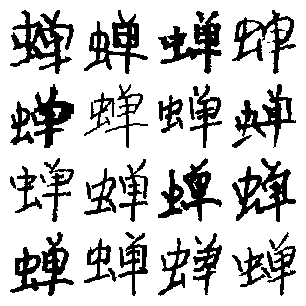 蝉蝉蝉蝉
蝉蝉蝉蝉
蝉蝉蝉蝉
蝉蝉蝉蝉